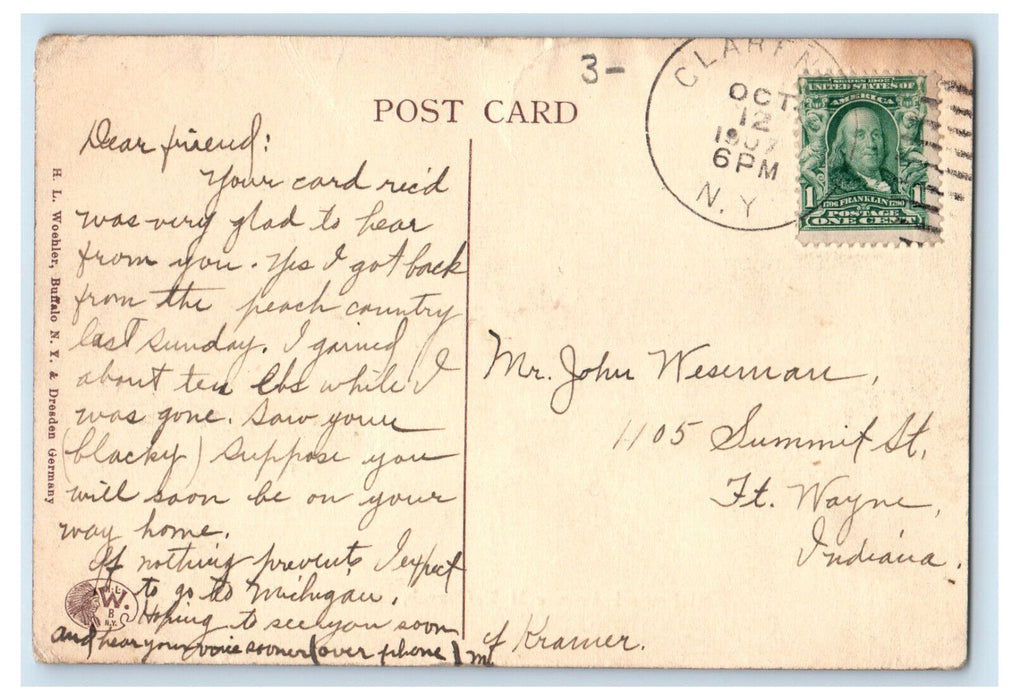 3-
POST CARD
CLAREN
OCT.
12
1907
6 PM
N. Y
SERIES 1902
UNITED STATES OF
AMERICA
1 1706 FRANKLIN 1790 1
POSTAGE
ONE CENT
Dear friend:
Your card rec'd
was very glad to hear
from you. Yes I got back
from the peach country
last Sunday. I gained
about ten lbs while I
was gone. Saw your
(blacky) suppose you
will soon be on your
way home.
If nothing prevents I expect
to go to Michigan.
Hoping to see you soon
and hear your voice sooner (over phone)
M. J. Kramer.
Mr. John Weseman,
1105 Summit St,
Ft. Wayne,
Indiana.
H. L. Woehler, Buffalo N. Y. & Dresden Germany
H.L.
W.
B
N.Y.